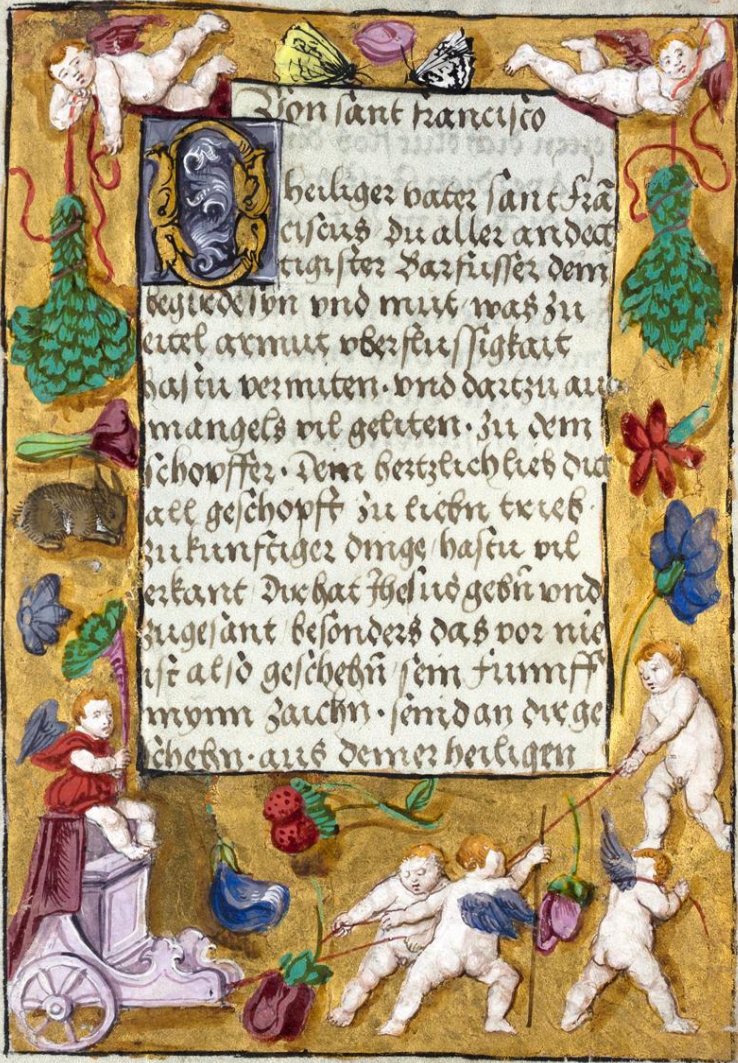 Von sant francisco
O heiliger vater sant frā
ciscus Du aller andech
tigister Barfusser dem
begirde syn vnd mut was zu
eitel armut vberflussigkait
hastu vermiten · vnd dartzu auch
mangels vil geliten · Zu dem
schopffer · Dem hertzlich lieb dich
all geschopff zu liebn trieb ·
zukunfftiger dinge hastu vil
erkant Dir hat Jhesus gebn̄ vnd
zugesant besonders das vor nie
ist also geschehn̄ sein funnff
wunn zaichn · seind an dir ge
schehn · aus deiner heiligen